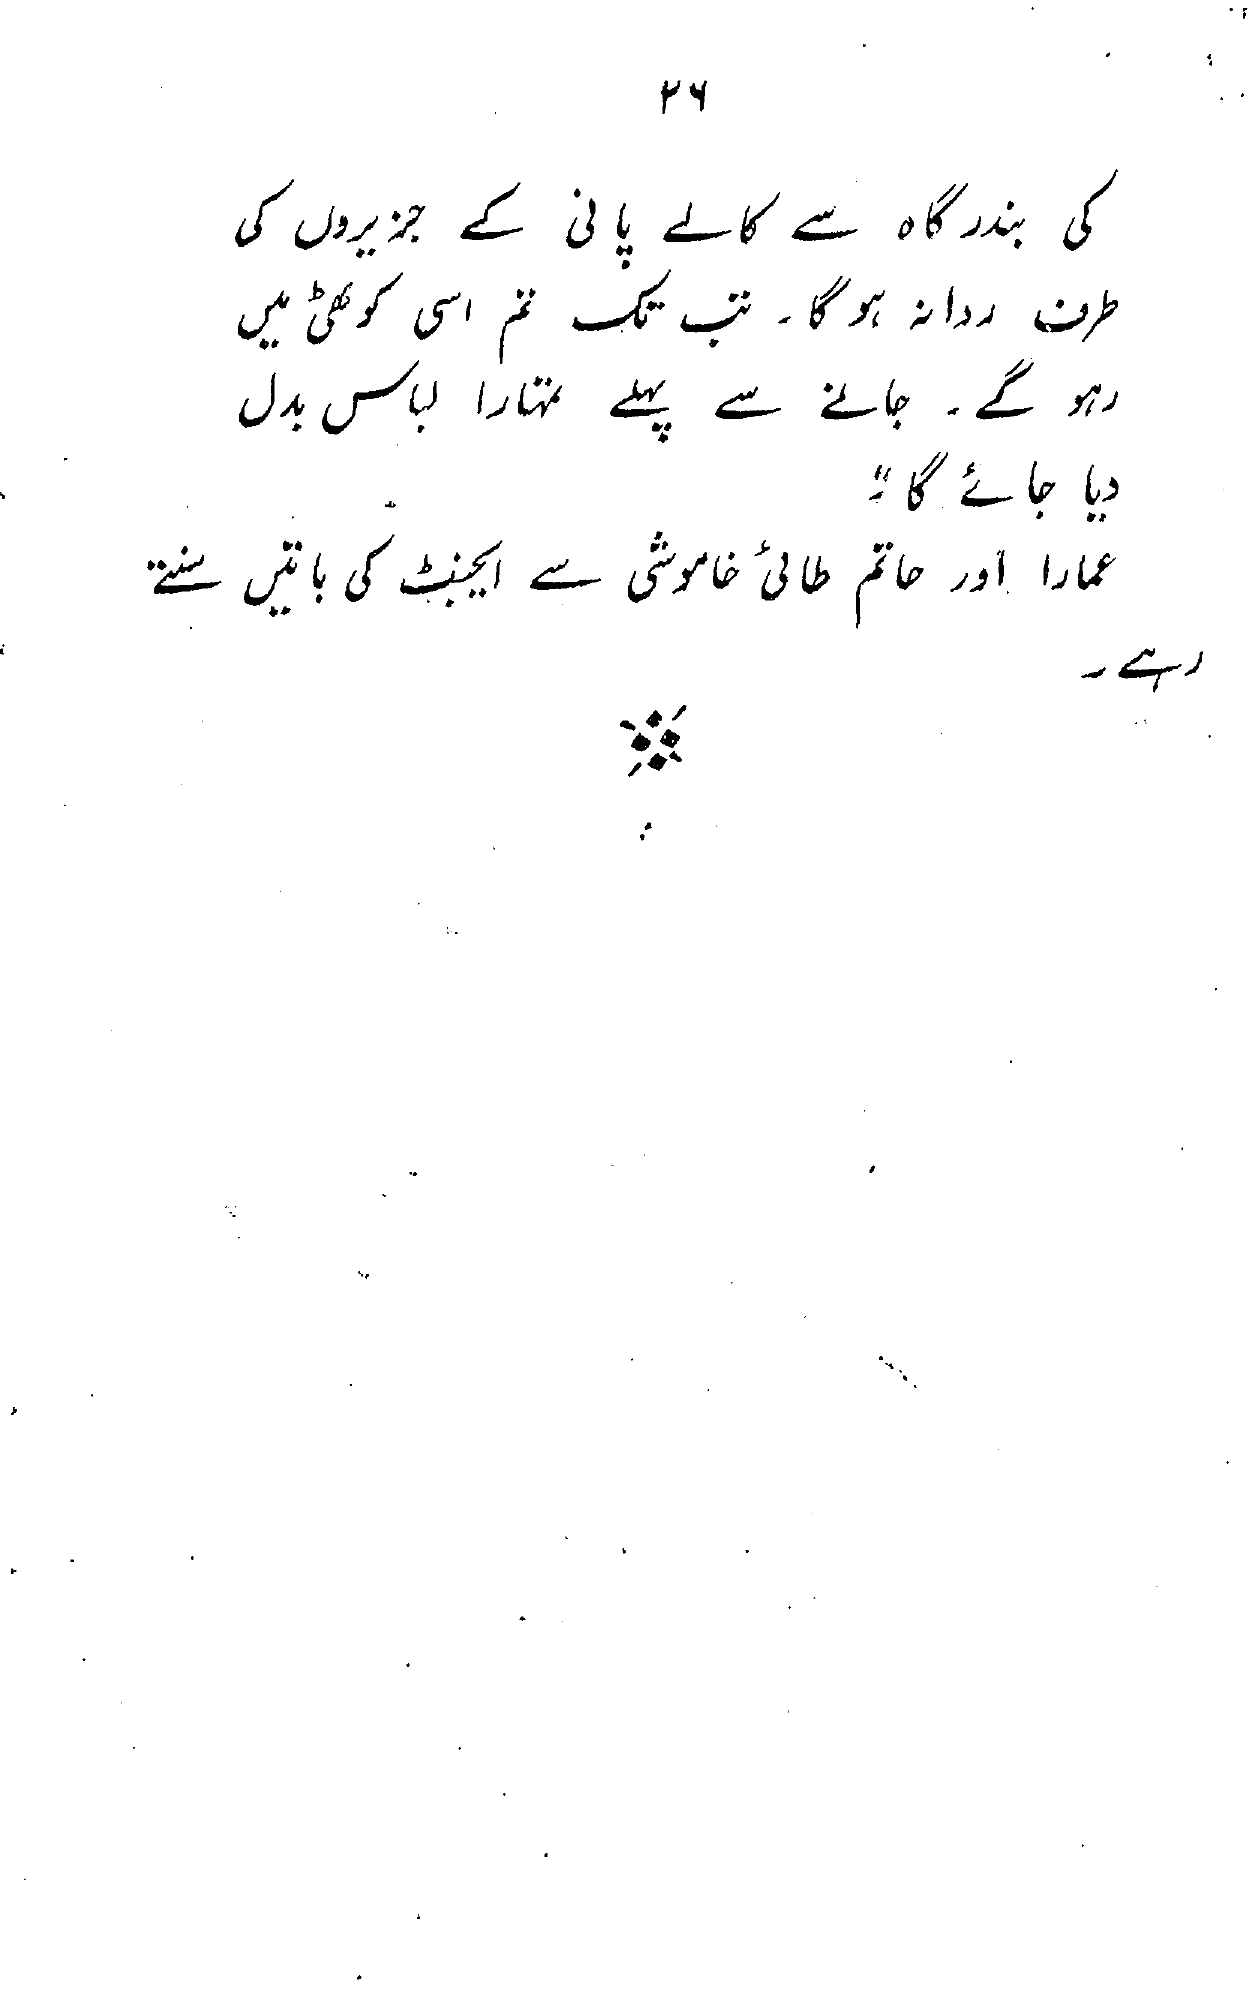 ۲۶
کی بندرگاہ سے کالے پانی کے جزیروں کی
طرف روانہ ہو گا۔ تب تک تم اسی کوٹھی میں
رہو گے۔ جانے سے پہلے تمہارا لباس بدل
دیا جائے گا۔"
عمارا اور حاتم طائی خاموشی سے ایجنٹ کی باتیں سنتے
رہے۔